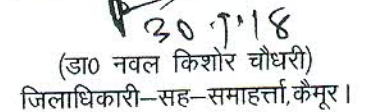 (डा० नवल किशोर चौधरी)
जिलाधिकारी–सह–समाहर्त्ता, कैमूर।